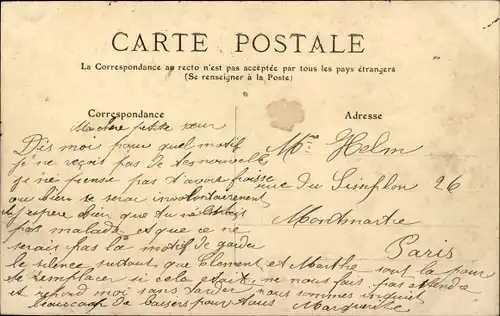 CARTE POSTALE
La Correspondance au recto n'est pas acceptée par tous les pays étrangers
(Se renseigner à la Poste)
Correspondance
Ma chere petite sœur
Dis moi pour quel motif
je ne reçoit pas de tes nouvelle
je ne pense pas t'avoir froisse
ou bien se serai involontairement
j'espere bien que tu n'est
pas malade et que ce ne
serais pas la motif de garder
le silence surtout que Clement et Marthe sont la pour
te remplace si cela etait, ne nous fais pas attendre
et repond moi sans tarder nous sommes inquiet
beaucoup de baisers pour tous Marguerite
Adresse
Helm
rue du Simplon 26
Montmartre
Paris